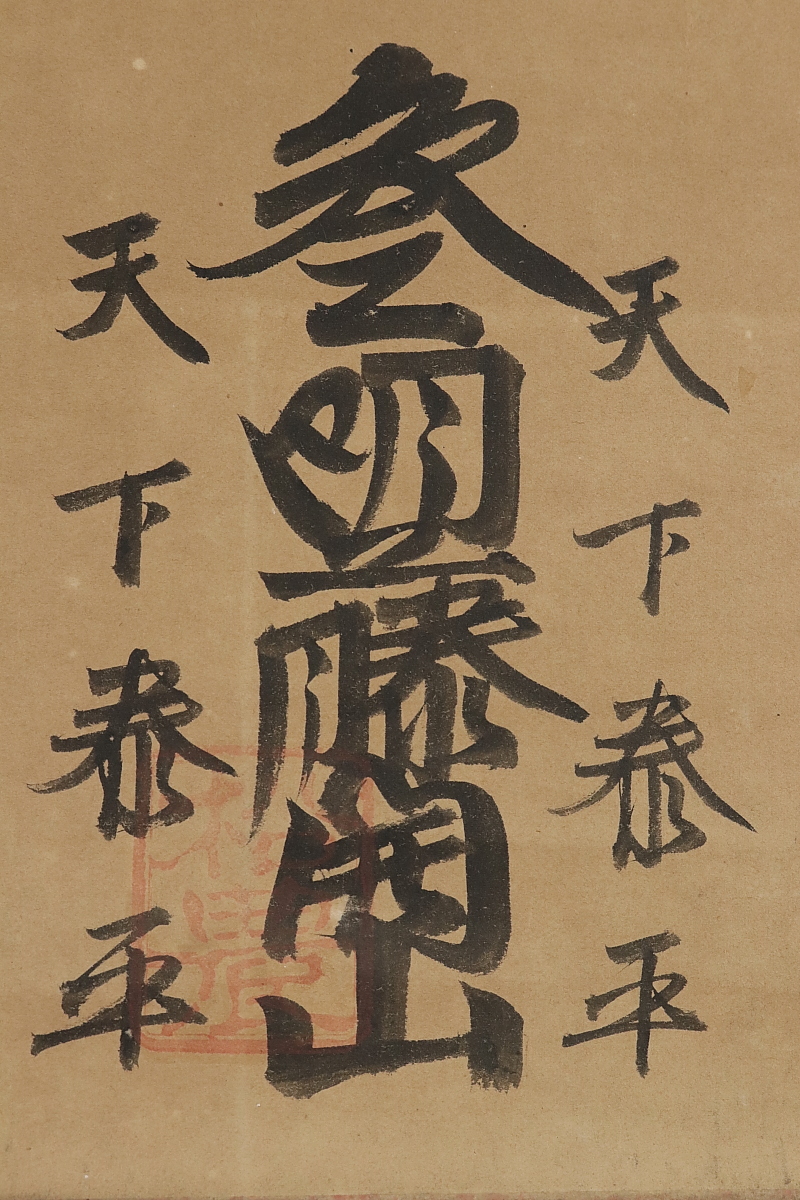 天下泰平
参明藤開山
天下泰平